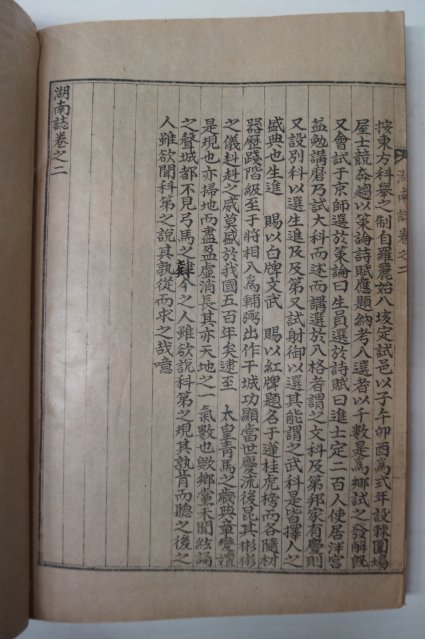 湖南誌卷之二
按東方科擧之制自羅麗始八垓定試邑以子午卯酉爲式年設棘圍場
屋士競奔趨以策論詩賦應題納考八選者以千數是爲鄕試之發解旣
又會試于京師選於策論曰生員選於詩賦曰進士定二百人使居泮宮
益勉講磨乃試大科而述而講選於八格者謂之文科及第邦家有慶則
又設別科以選生進及及第又試射御以選其能謂之武科是皆擇人之
盛典也生進 賜以白牌文武 賜以紅牌題名于蓮桂虎榜而各隨材
器歷踐階級至于將相八爲輔弼出作干城功顯當世慶流後昆其彬彬
之儀赳赳之威莫盛於我國五百年矣逮至 太皇靑馬之歲典章變禮
是規也亦掃地而盡盈虛消長其亦天地之一氣數也歟鄕黨不聞絃誦
之聲城都不見弓馬之肄今之人雖欲說科第之規其孰肯而聽之後之
人雖欲聞科第之說其孰從而求之哉噫
湖南誌卷之二